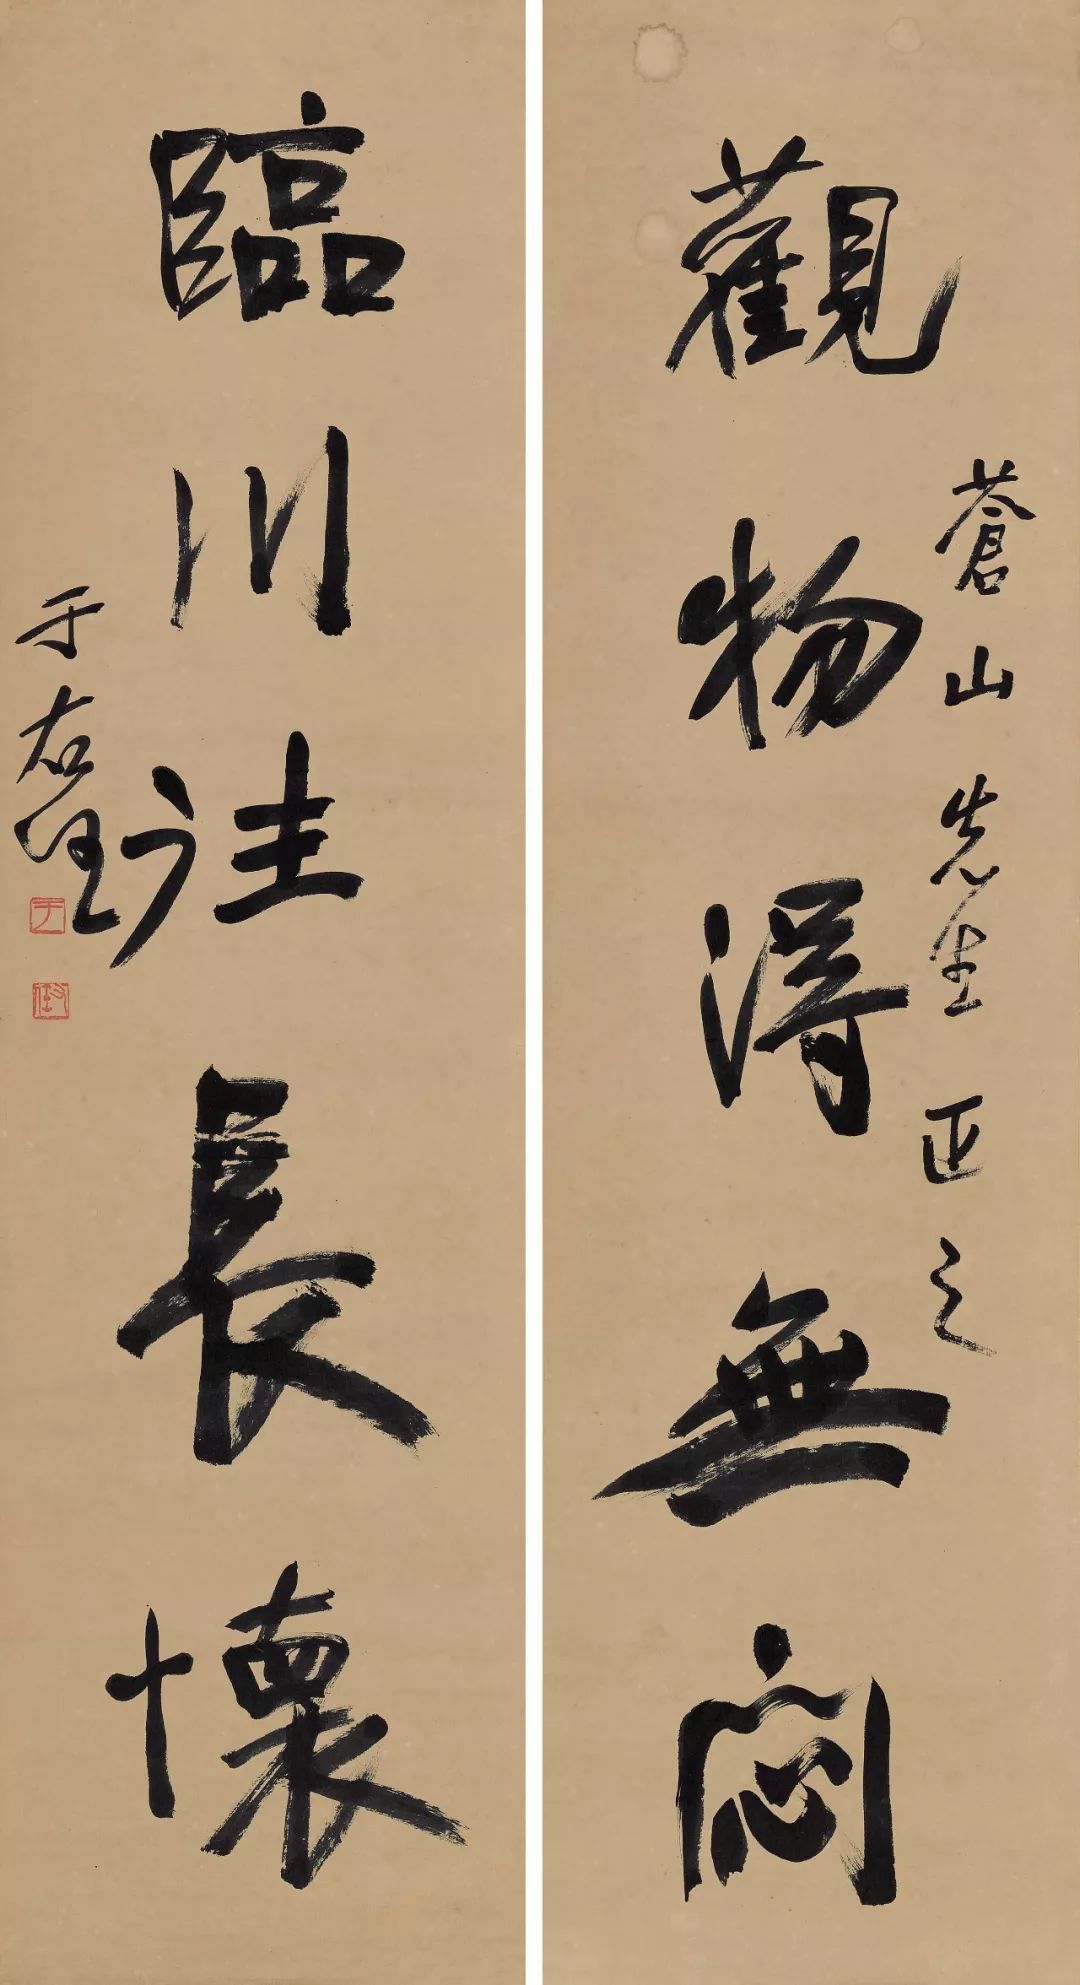 觀物得無悶
蒼山先生正之
臨川注長懷
于右任
于
右任